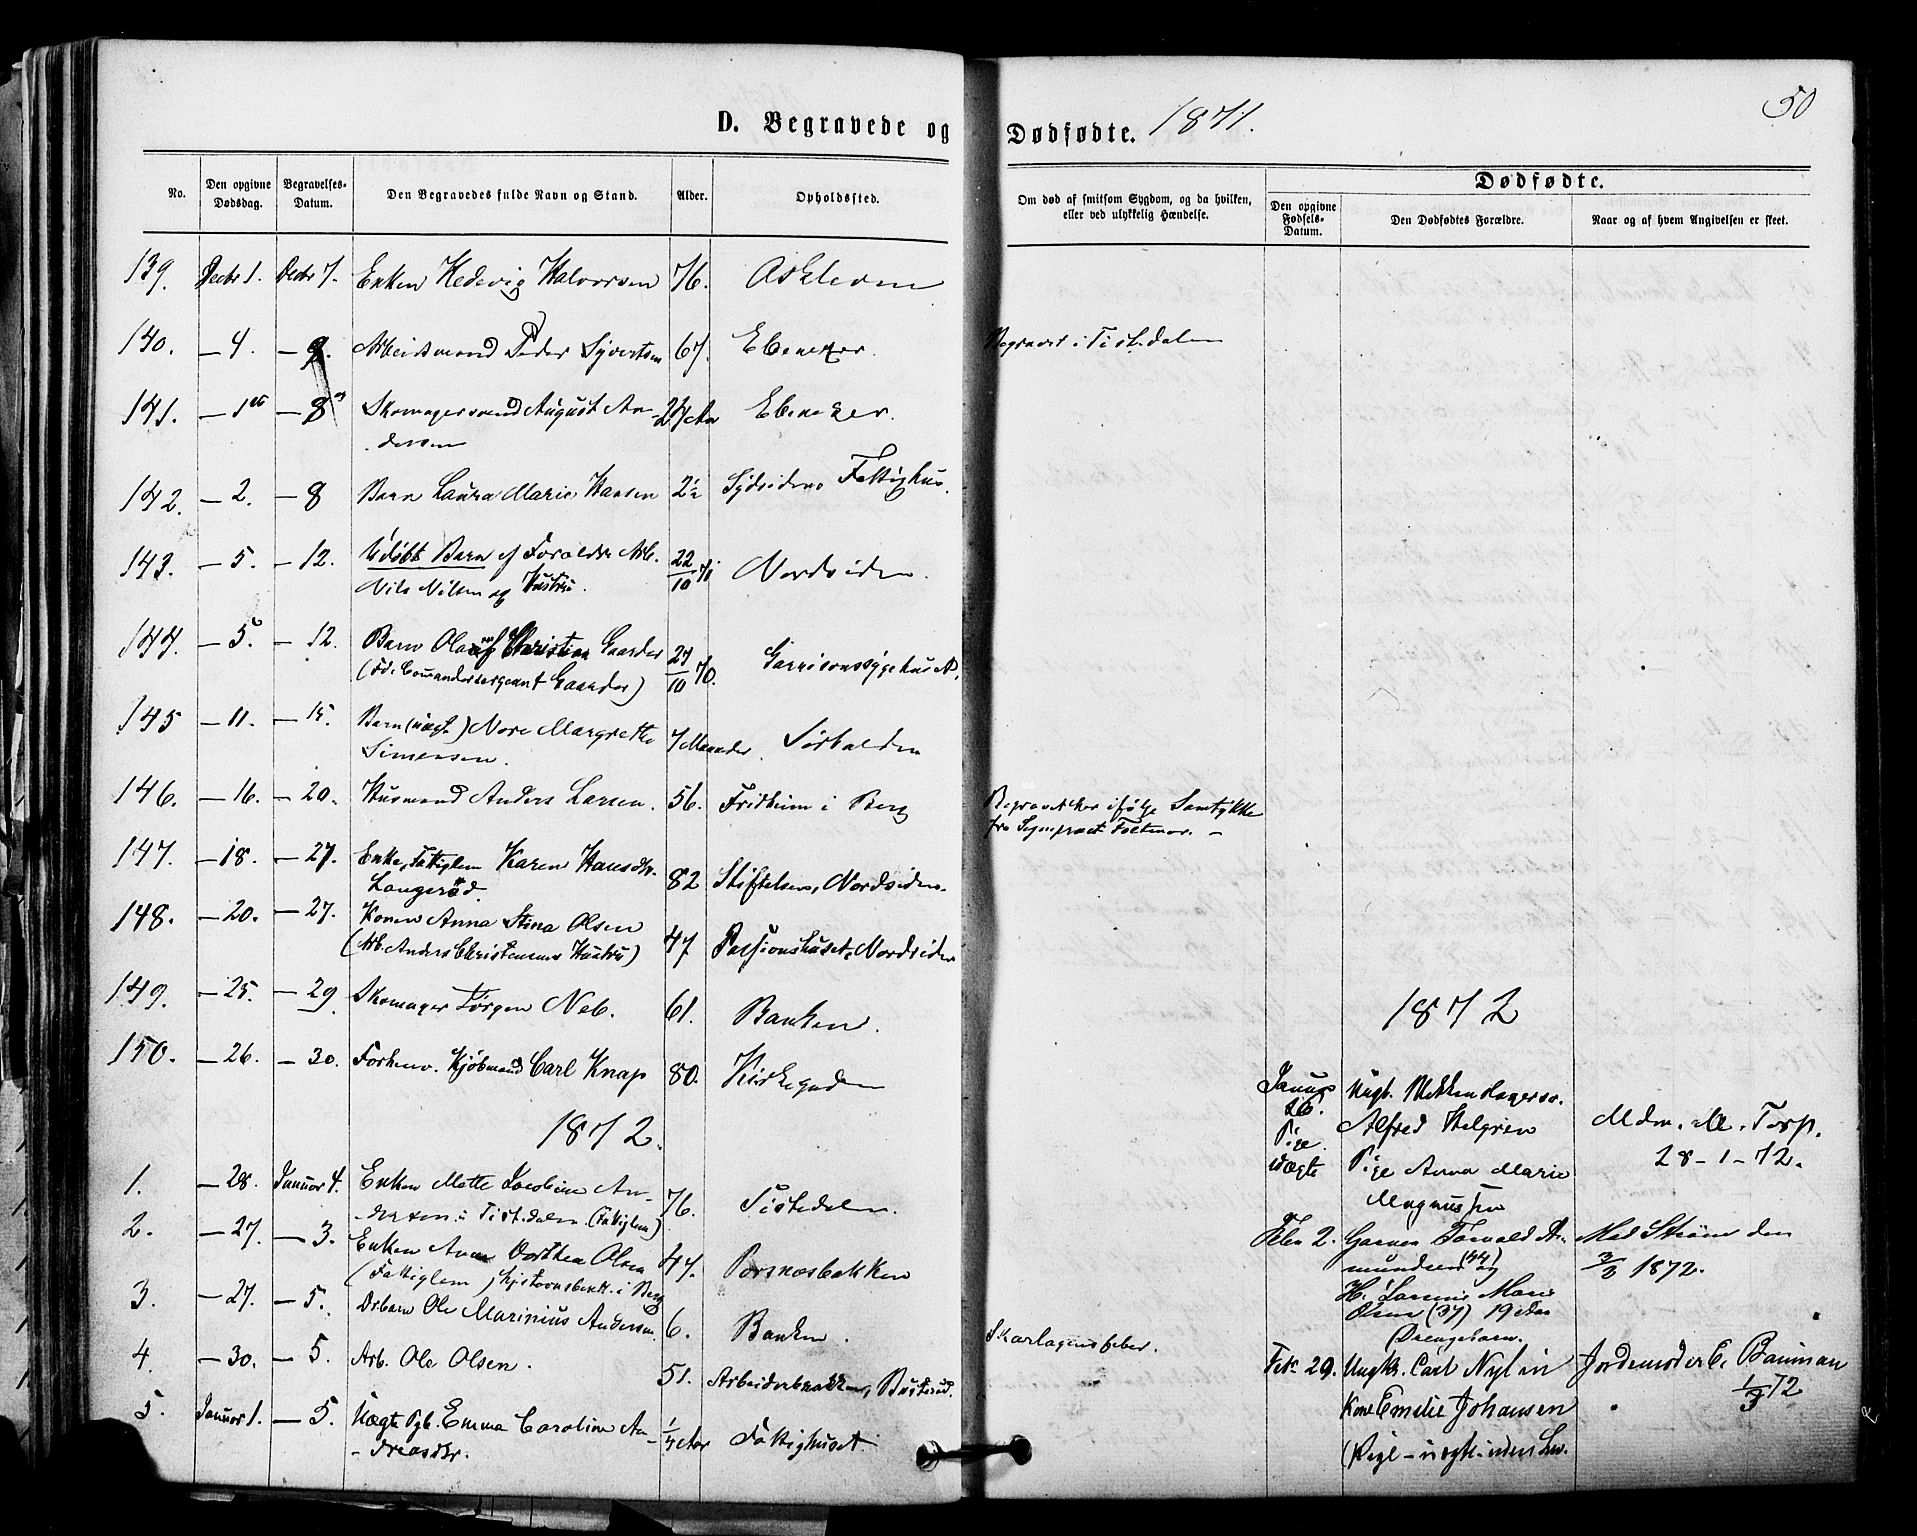 50
D. Begravede og Dødfødte. 1871.
No. Den opgivne Dødsdag. Begravelses-Datum. Den Begravedes fulde Navn og Stand. Alder. Opholdssted. Om død af smitsom Sygdom, og da hvilken, eller ved ulykkelig Hændelse.
Dødfødte.
Den opgivne Fødsels-Datum. Den Dødfødtes Forældre. Naar og af hvem Angivelsen er skeet.
139. Decbr 1. Decbr 7. Enken Hedevig Halvorsen 76. Asklem
140. — 4. — 9. Arbeidsmand Peder Syvertsen 67. Ebenezer. Begravet i Tistedalen
141. — 1 — 8 Skomagersvend August An- 27 Aar Ebenezer.
dersen
142. — 2. — 8 Barn Laura Marie Hansen 2½ Sydsidens Fattighus.
143. — 5. — 12. Udøbt Barn af Forældre Arb. 22/10 71 Nordsiden.
Nils Nilsen og Hustru.
144. — 5. — 12. Barn Olaf Christian Gaarder 27/10 70. Garnisonssygehuset,
(Fd. Comandersergeant Gaarder)
145 — 11. — 15. Barn (uægt.) Nore Margrethe 7 Maaneder. Sørhalden
Simensen.
146. — 16. — 20. Husmand Anders Larsen. 56. Fridheim i Berg Begravet her ifølge Samtykke
fra Sognepræst Feltmar. —
147. — 18. — 27. Enke, Fattiglem Karen Hansdtr. 82 Stiftelsen, Nordsiden.
Langerød.
148. — 20. — 27. Konen Anna Stina Olsen 47 Passionshuset, Nordsiden
(Arb. Anders Christensens Hustru)
149. — 25. — 29 Skomager Jørgen Neb. 61. Banken.
150. — 26. — 30. Forhenv. Kjøbmand Carl Knap 80. Kirkegaden
1872.
1. — 28. Januar 4. Enken Mette Jacobine An- 76. Tistedalen.
dersen i Tistedalen (Fattiglem)
2. — 27. — 3. Enken Anne Dorthea Olsen 47. Porsnæsbakken
(Fattiglem) i Berg
3. — 27. — 5. Ole Marinius Andersen. 6. Banken. Skarlagensfeber.
4. — 30. — 5. Arb. Ole Olsen. 51. Arbeiderbakken,
5. Januar 1. — 5. Uægte Pgb. Emma Caroline An- ¼ Aar Fattighuset.
- dreasdtr.
1872
Januar 26. Pige uægte Ungk. Blikkenslagersv.
Alfred Helgren Mdm. M. Torp.
Pige Anna Marie 28-1-72.
Magnussen
Febr 2. Garver Torvald A- Mad Strøm den
mundsen (44) og 3/3 1872.
H. Lovise Marie
Olsen (37) 19 Aar
Drengebarn.
Feb. 29. Ungkr. Carl Nylin Jordemoder C. Bauman
Kone Emilie Johansen 1/3 72
(Pige – uægte uden Lev.